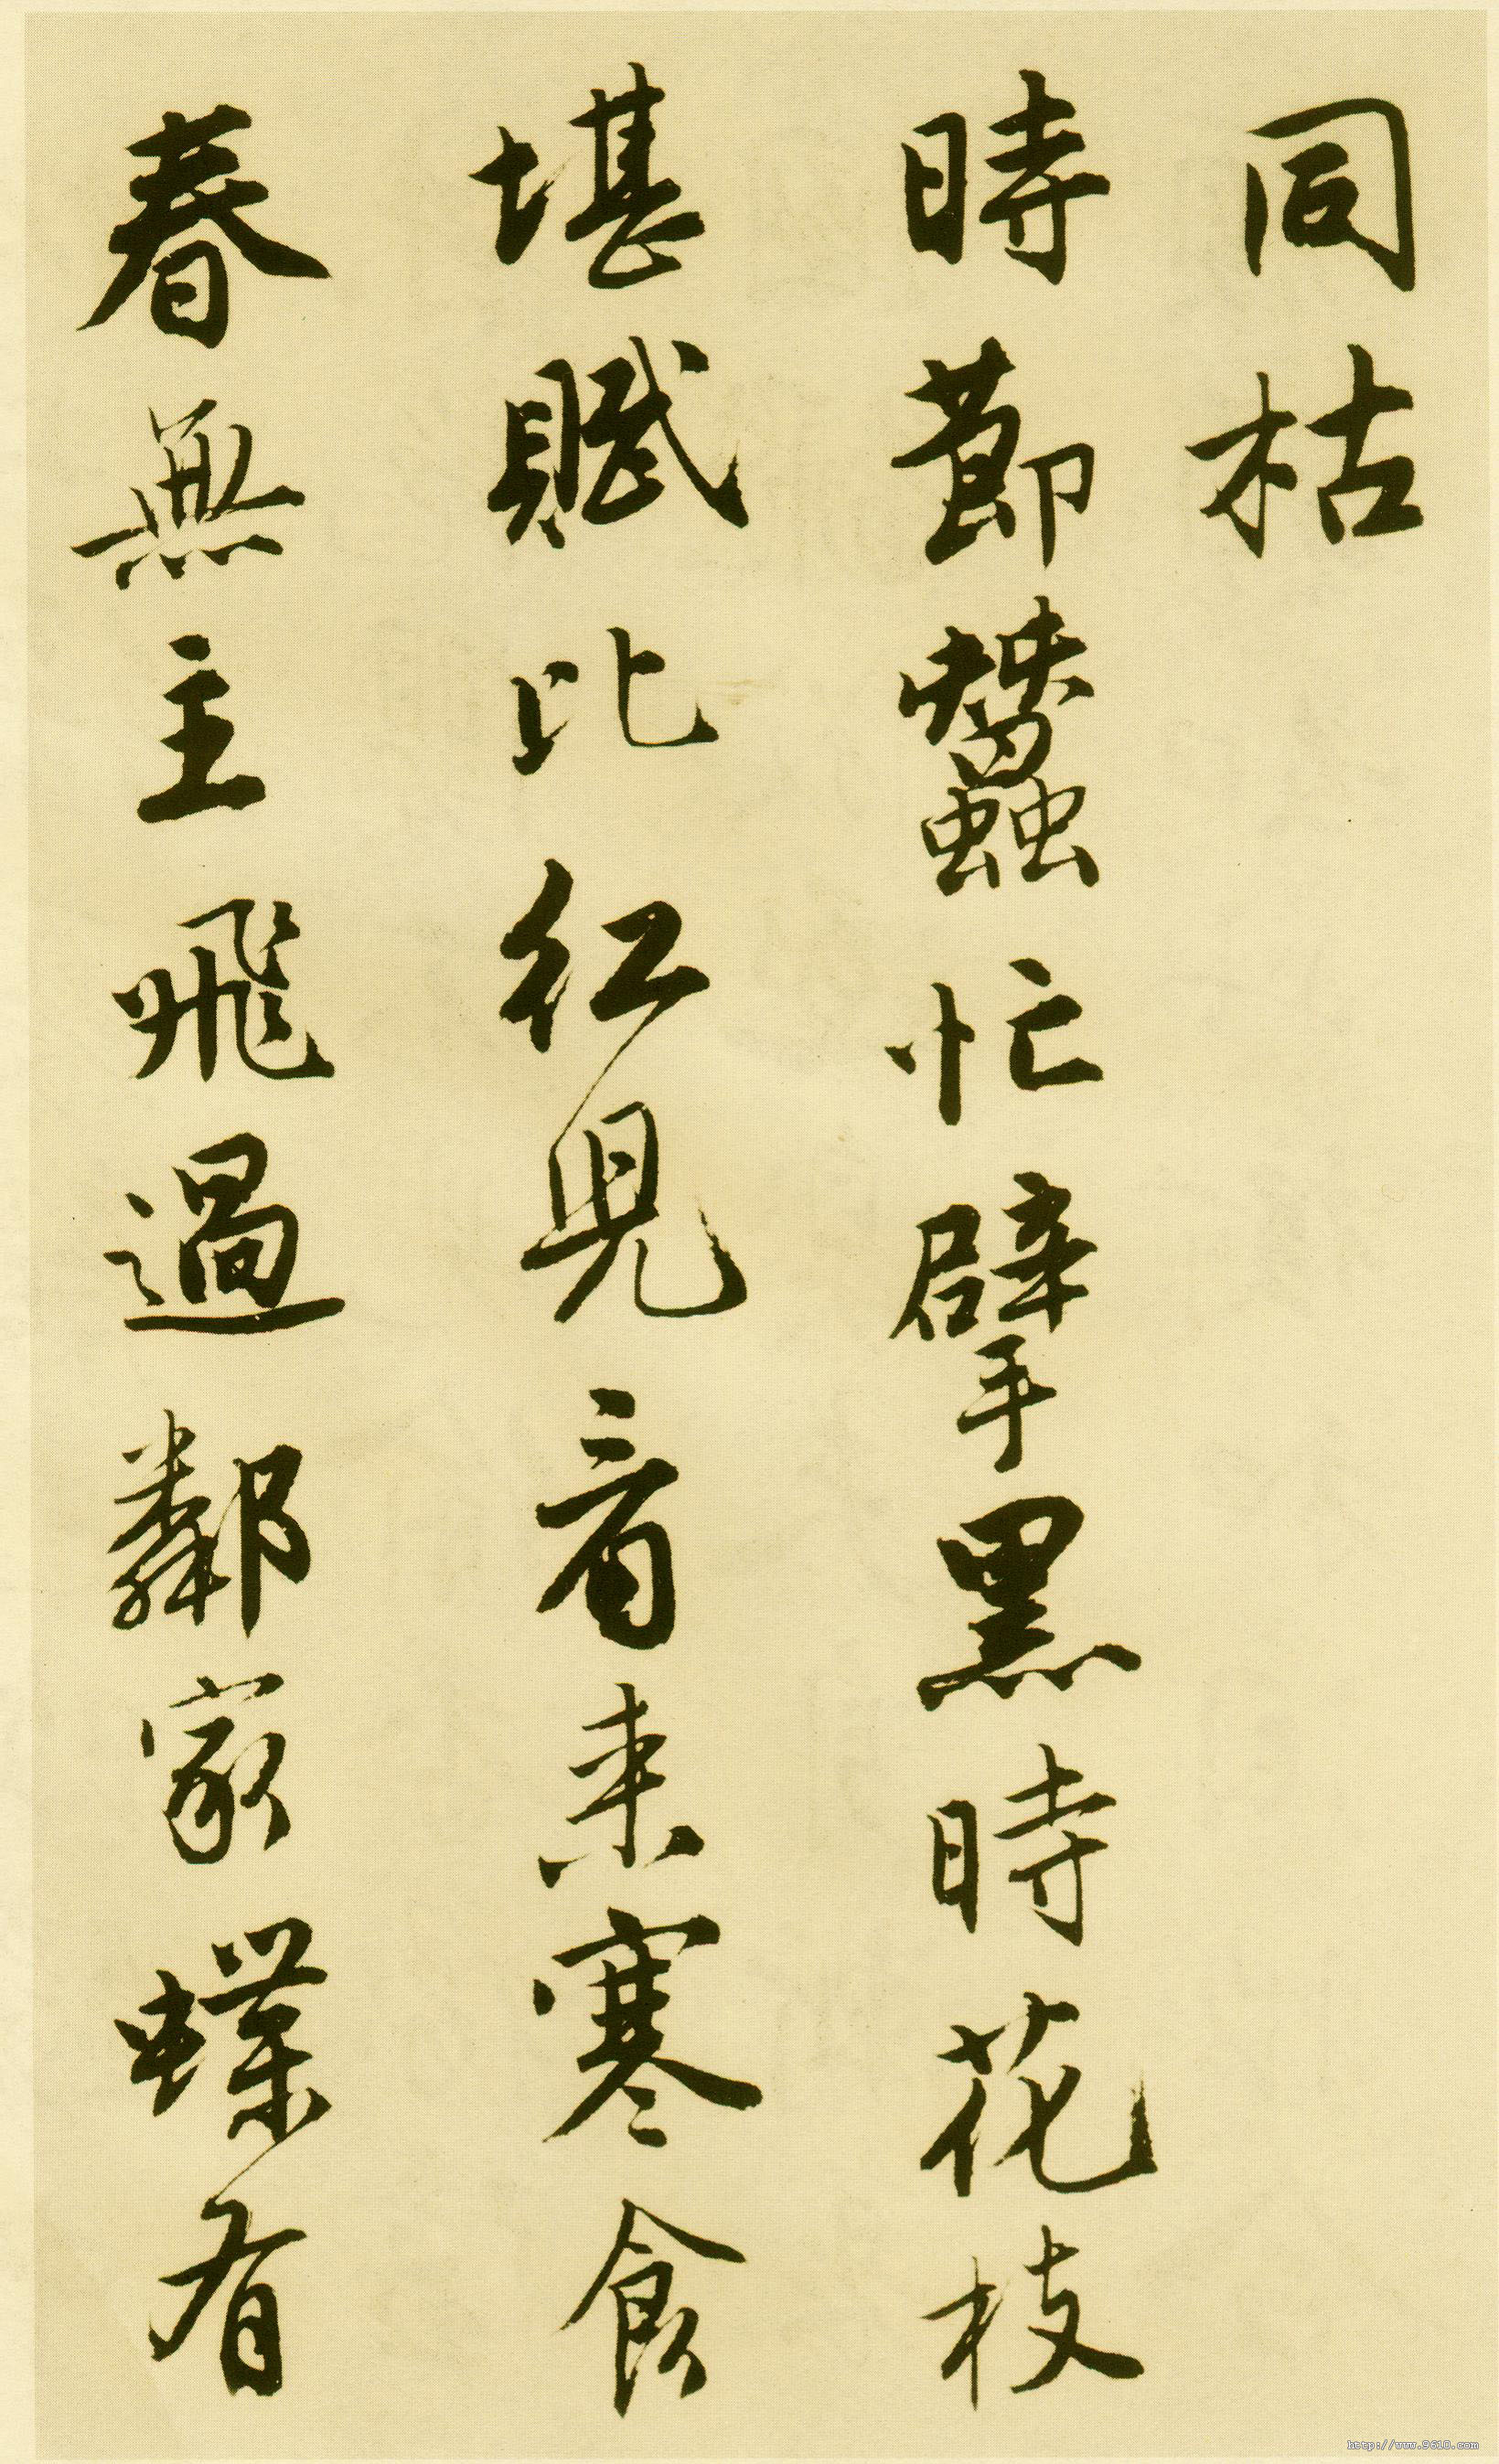 同枯
時節蠶忙擘黑時花枝
堪賦比紅兒看來寒食
春無主飛過鄰家蝶有
http://www.9610.com